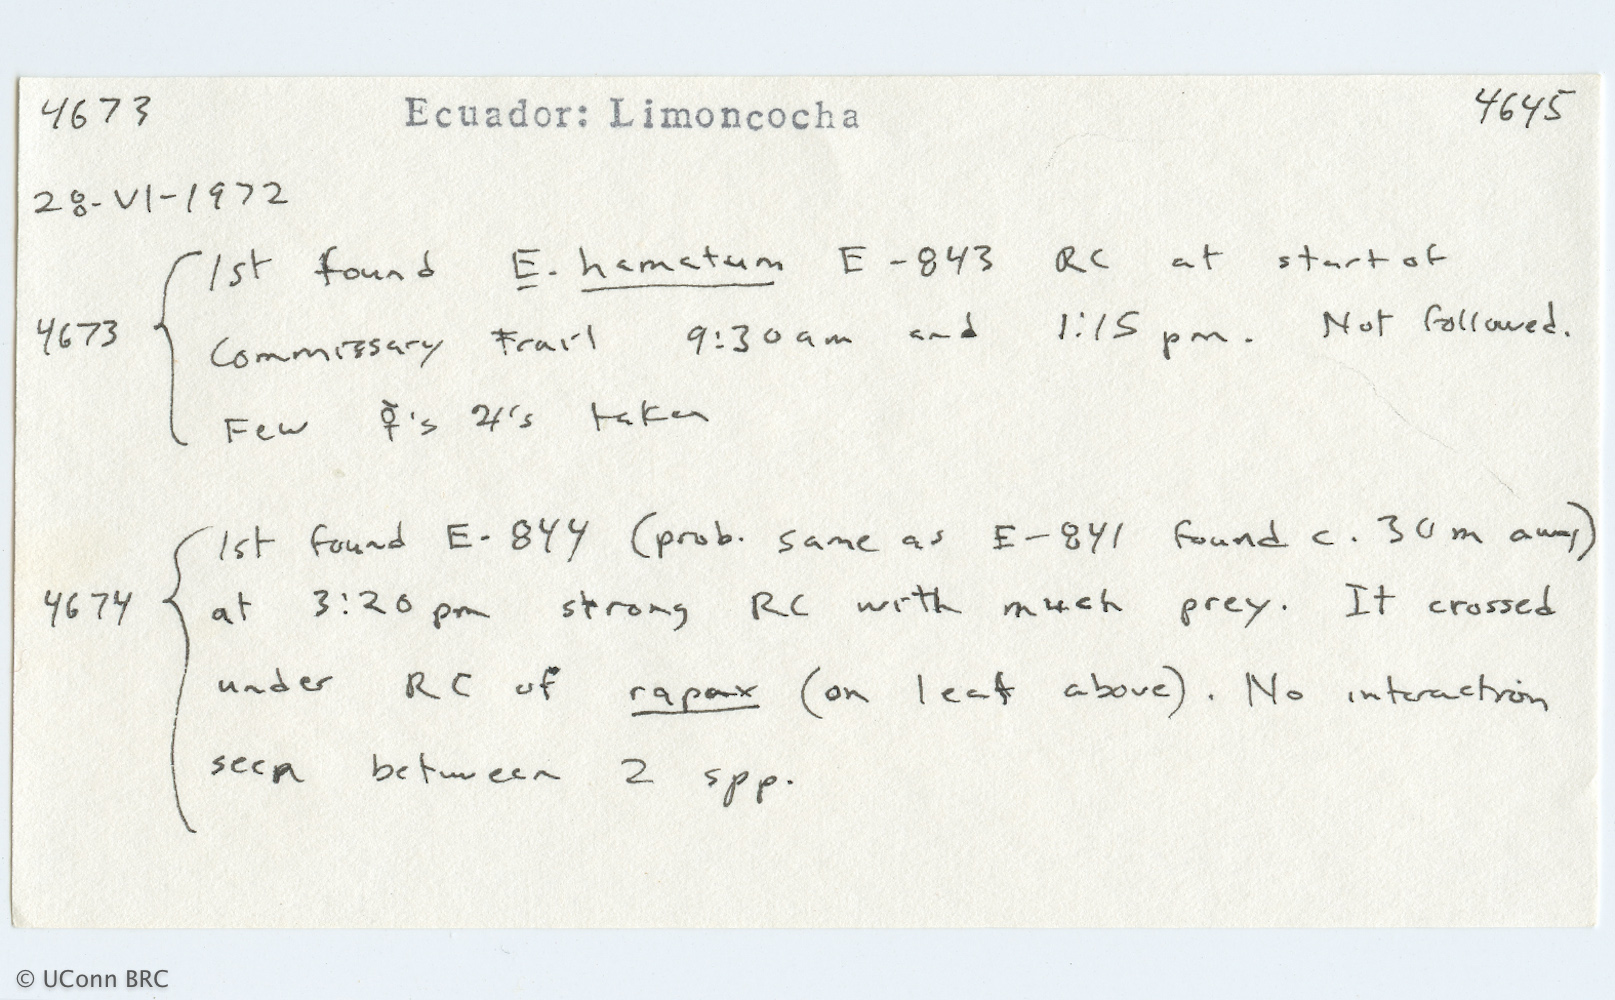 4673 Ecuador: Limoncocha 4645
28-VI-1972
1st found E. hamatum E-843 RC at start of
4673 Commissary Trail 9:30am and 1:15 pm. Not followed.
Few ☿'s ♃'s taken
1st found E-844 (prob. same as E-841 found c. 30m away)
4674 at 3:20pm strong RC with much prey. It crossed
under RC of rapax (on leaf above). No interaction
seen between 2 spp.
© UConn BRC